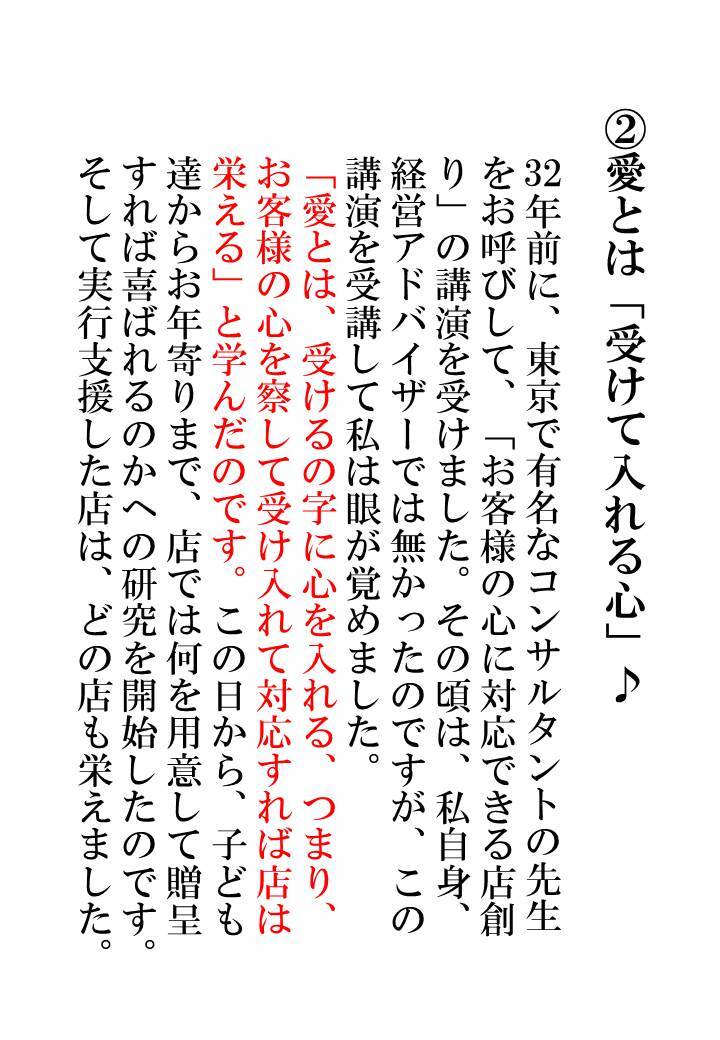 ②愛とは「受けて入れる心」♪
32年前に、東京で有名なコンサルタントの先生
をお呼びして、「お客様の心に対応できる店創
り」の講演を受けました。その頃は、私自身、
経営アドバイザーでは無かったのですが、この
講演を受講して私は眼が覚めました。
「愛とは、受けるの字に心を入れる、つまり、
お客様の心を察して受け入れて対応すれば店は
栄える」と学んだのです。この日から、子ども
達からお年寄りまで、店では何を用意して贈呈
すれば喜ばれるのかへの研究を開始したのです。
そして実行支援した店は、どの店も栄えました。